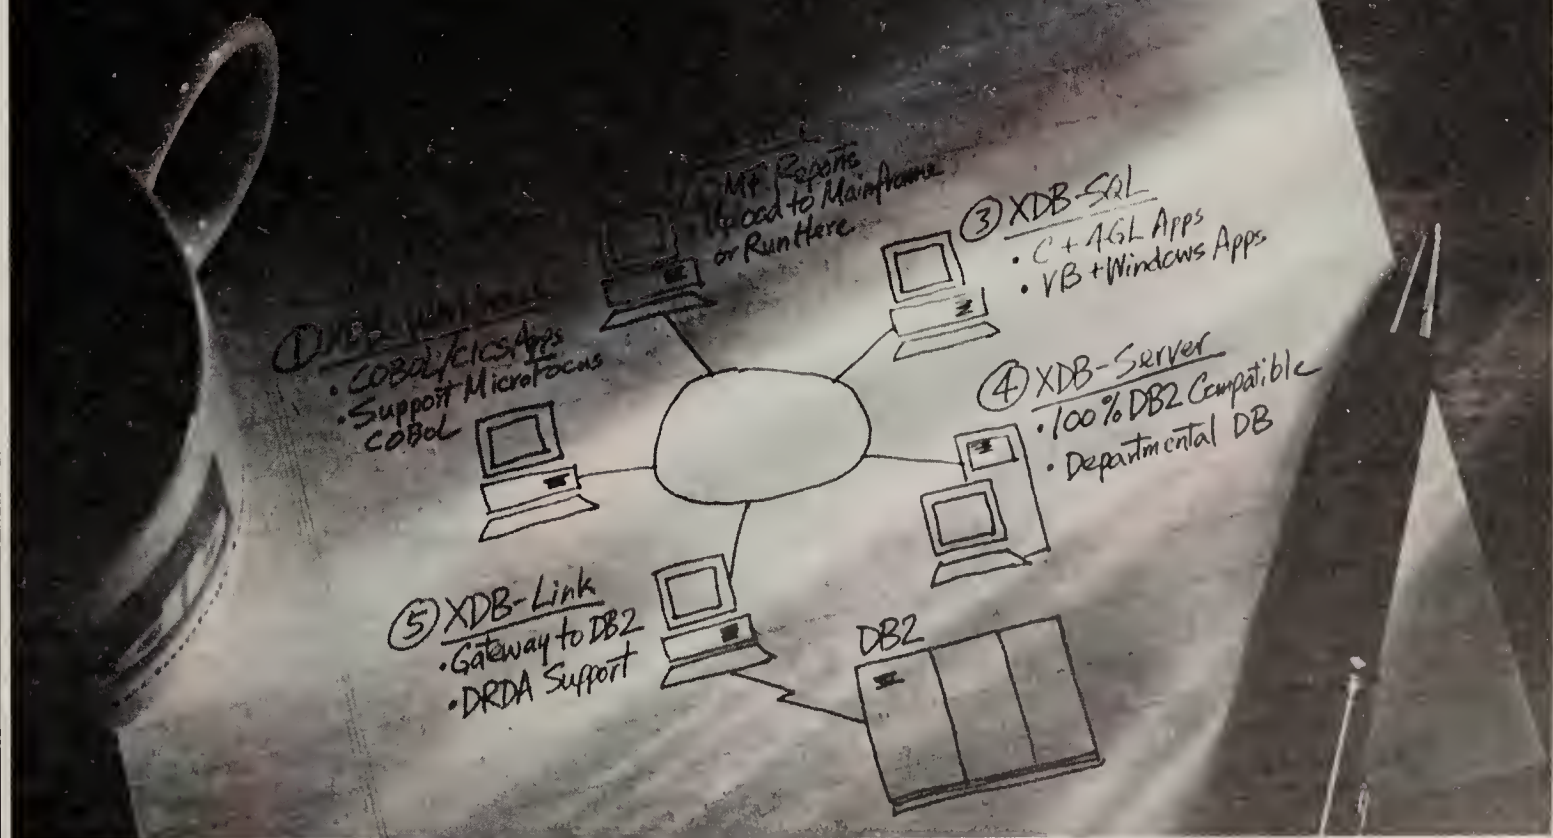 ①
• COBOL/CICS Apps
• Support MicroFocus
COBOL
Reports
to Mainframe
or Run Here
③ XDB-SQL
• C + 4GL Apps
• VB + Windows Apps
④ XDB-Server
• 100% DB2 Compatible
• Departmental DB
⑤ XDB-Link
• Gateway to DB2
• DRDA Support
DB2